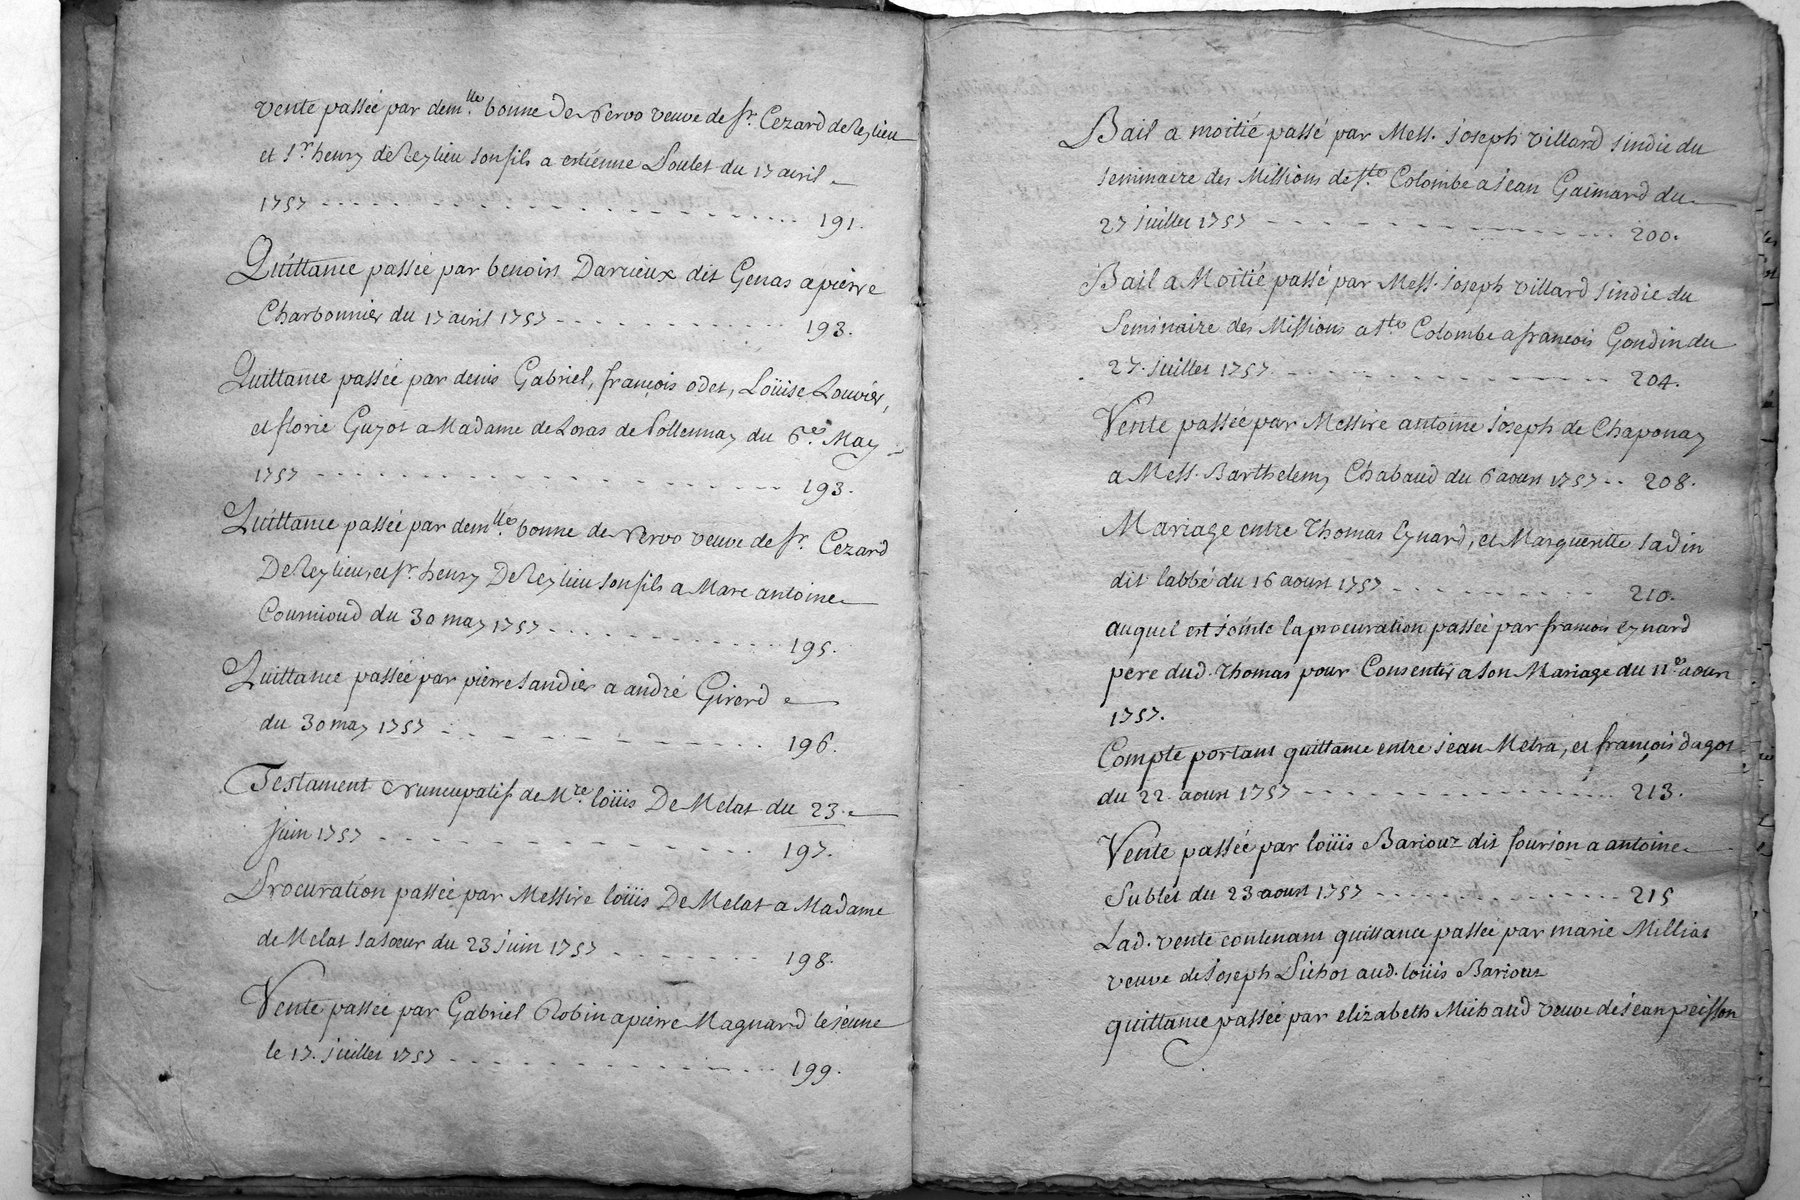 vente passée par dem.lle bonne de Nervo veuve de sr. Cezard de Reylieu
et sr. henry de Reylieu son fils a estienne Poulet du 17 avril
1757 - - - - - - - - - - - - - - - - 191.
Quittance passée par benoist Darzieux dit Genas a pierre
Charbonnier du 17 avril 1757 - - - - - - - - - - 193.
Quittance passée par denis Gabriel, françois odet, Loüise Louvier,
et florie Guyot a Madame de Loras de Pollennay du 6.e May
1757 - - - - - - - - - - - - - - - - 193.
Quittance passée par dem.lle bonne de Nervo veuve de sr. Cezard
De Reylieu, et sr. henry De Reylieu son fils a Marc antoine
Cournioud du 30 may 1757 - - - - - - - - - - 195.
Quittance passée par pierre sandier a andré Girerd
du 30 may 1757 - - - - - - - - - - - - 196.
Testament Nuncupatif de M.re loüis De Melat du 23.
juin 1757 - - - - - - - - - - - - - - 197.
Procuration passée par Messire loüis De Melat a Madame
de Melat sa soeur du 23 juin 1757 - - - - - - - - 198.
Vente passée par Gabriel Robin a pierre Magnard le jeune
le 17. juillet 1757 - - - - - - - - - - - - 199.
Bail a moitié passé par Mess. joseph villard sindic du
seminaire des Missions de ste. Colombe a jean Gaimard du
27 juillet 1757 - - - - - - - - - - - - - - 200.
Bail a Moitié passé par Mess. joseph villard sindic du
Seminaire des Missions a ste. Colombe a françois Gondin du
27. juillet 1757 - - - - - - - - - - - - - - 204.
Vente passée par Messire antoine joseph de Chaponay
a Mess. Barthelemy Chabaud du 6 aoust 1757 - - 208.
Mariage entre Thomas Eynard, et Margueritte sadin
dit labbé du 16 aoust 1757 - - - - - - - - - - 210.
auquel est jointe la procuration passée par francois Eynard
pere dud. Thomas pour Consentir a son Mariage du 11.e aoust
1757.
Compte portant quittance entre jean Metra, et françois dagot
du 22. aoust 1757 - - - - - - - - - - - - - - 213.
Vente passée par loüis Bariout dit fourion a antoine
Sublet du 23 aoust 1757 - - - - - - - - - - - 215
Lad. vente contenant quittance passée par marie Milliat
veuve de joseph Pichot aud. loüis Bariout
quittance passée par elizabeth Michaud veuve de jean peisson